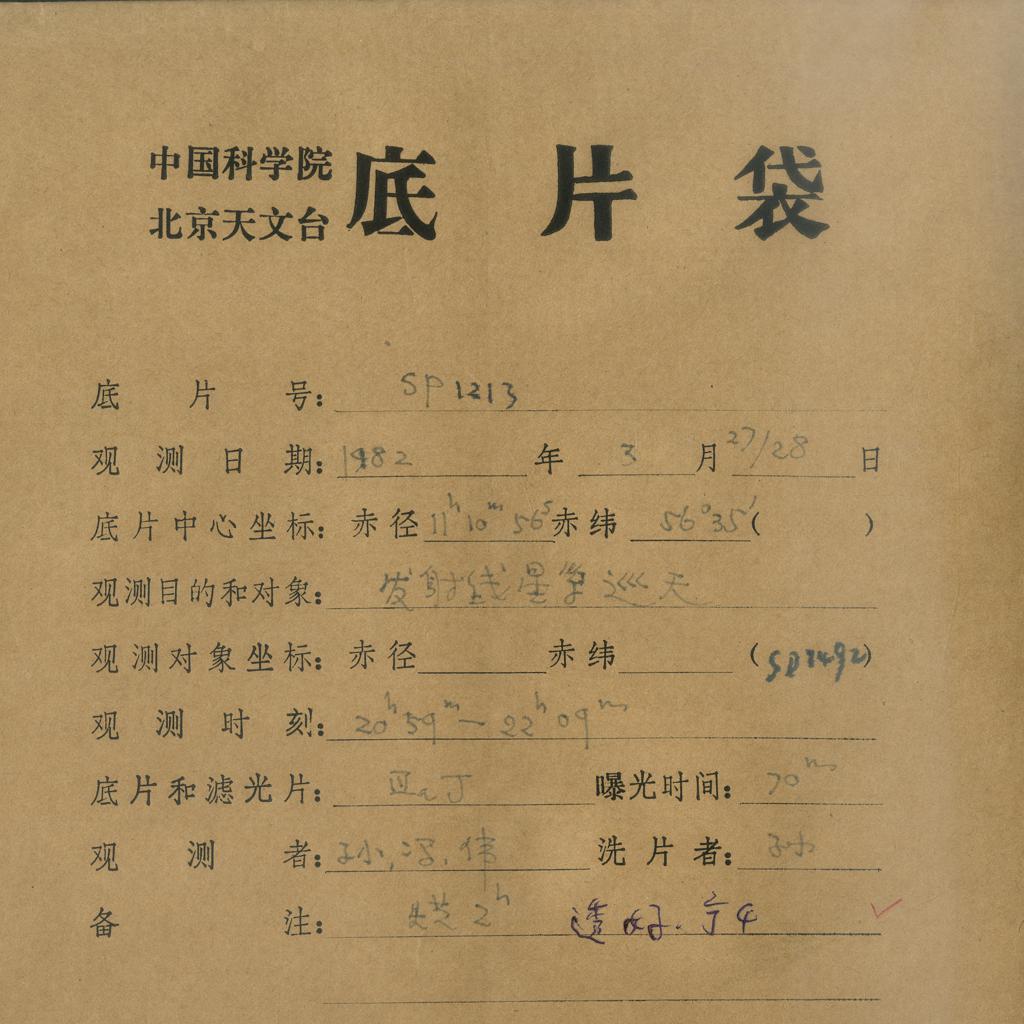 中国科学院
北京天文台 底片袋
底片号: SP1213
观测日期: 1982年3月27/28日
底片中心坐标: 赤径 11h10m56s 赤纬 56°35′( )
观测目的和对象: 发射线星等巡天
观测对象坐标: 赤径 赤纬 ( )
观测时刻: 20h59m—22h09m
底片和滤光片: Ⅱa-J 曝光时间: 70m
观测者: 孙, 冯, 伟 洗片者: 孙
备注: 2h 透好. 宁4